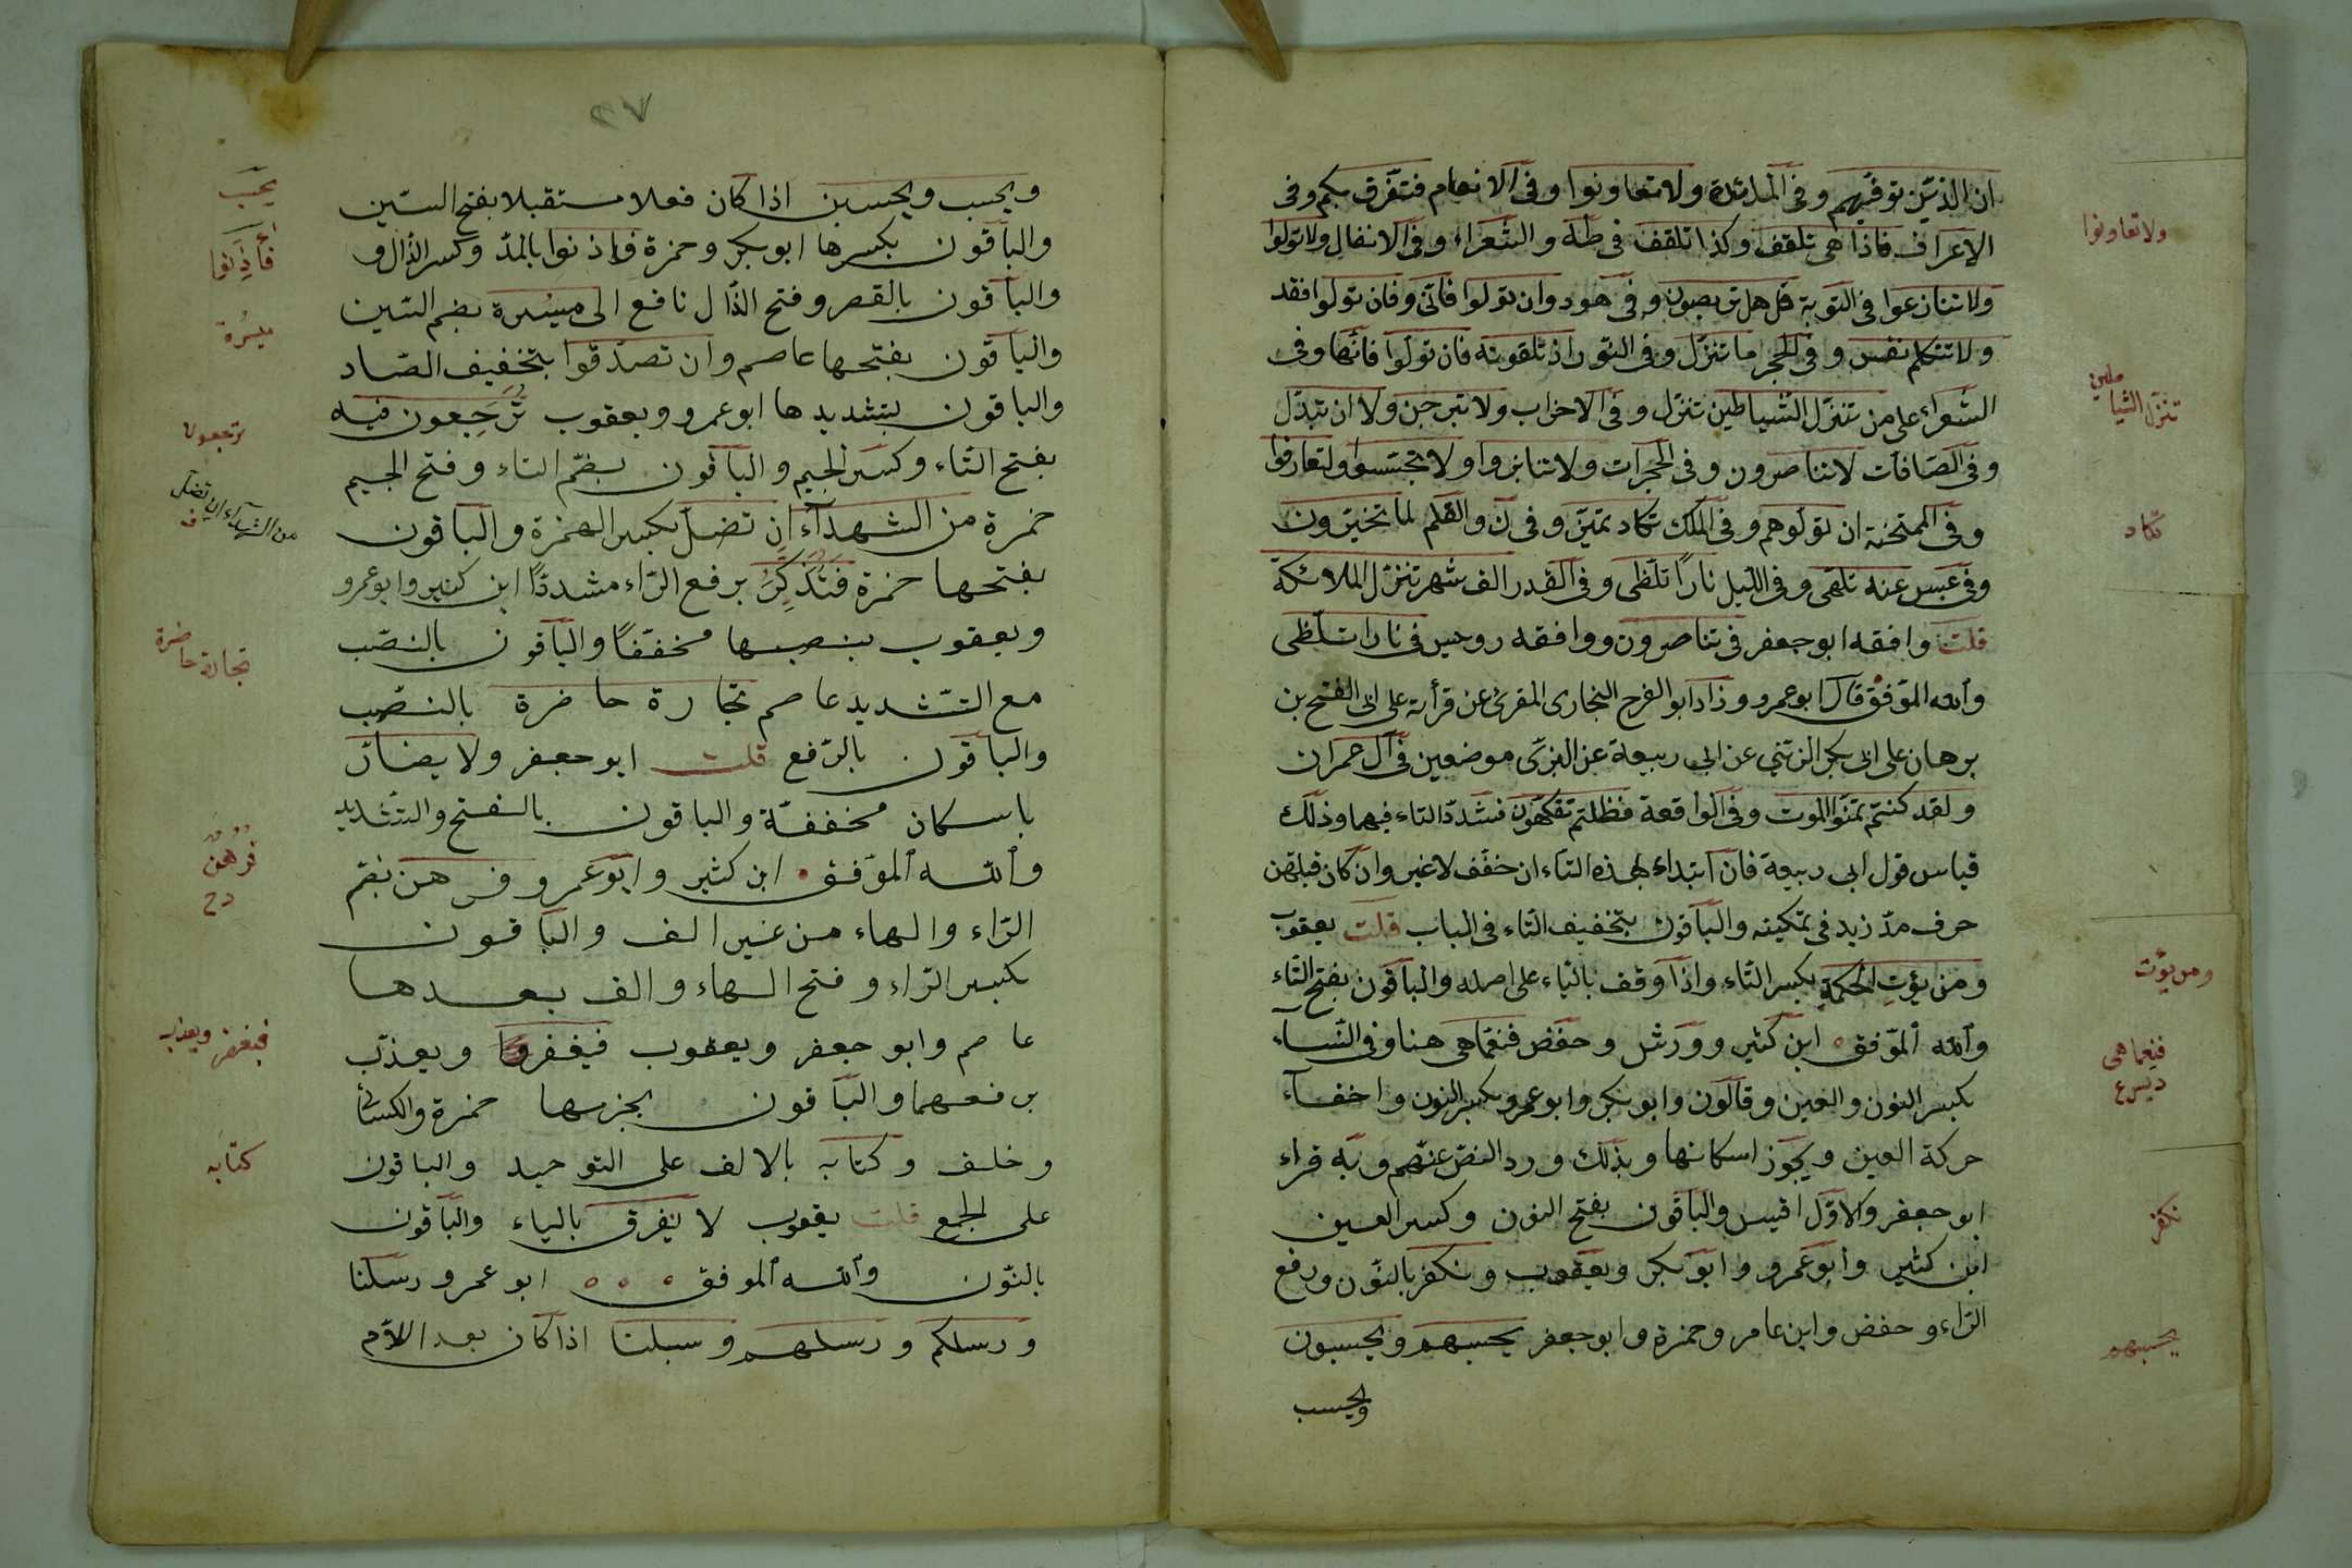 ان الذين توفيهم وفى المائدة ولا تعاونوا وفى الانعام فتفرق بكم وفى
الاعراف فاذا هى تلقف وكذا تلقف فى طه والشعراء وفى الانفال ولا تولوا
ولا تنازعوا فى التوبة قل هل تربصون وفى هود وان تولوا فانى وفان تولوا فقد
ولا تتكلم نفس وفى الحجر ما تنزل وفى النور اذ تلقونه فان تولوا فانما وفى
الشعراء على من تنزل الشياطين تنزل وفى الاحزاب ولا تبرجن ولا ان تبدل
وفى الصافات لا تناصرون وفى الحجرات ولا تنابزوا ولا تجسسوا ولتعارفوا
وفى الممتحنة ان تولوهم وفى الملك تكاد تميز وفى ن والقلم لما تخيرون
وفى عبس عنه تلهى وفى الليل نارًا تلظى وفى القدر الف شهر تنزل الملائكة
قلت وافقه ابو جعفر فى تناصرون ووافقه رويس فى نارا تلظى
والله الموفق قال ابو عمرو وزاد ابو الفرج النجارى المقرئ عن قرأته على ابى الفتح بن
برهان على ابى بكر الزينبي عن ابى ربيعة عن البزى موضعين فى آل عمران
ولقد كنتم تمنوا الموت وفى الواقعة فظلتم تفكهون فشدد التاء فيهما وذلك
قياس قول ابى ربيعة فان ابتداء بهذه التاء ان خفف لا غير وان كان قبلهن
حرف مد زيد فى تمكينه والباقون بتخفيف التاء فى الباب قلت يعقوب
ومن يؤتِ الحكمة بكسر التاء واذا وقف بالياء على اصله والباقون بفتح التاء
والله الموفق ابن كثير وورش وحفض فنعما هى هنا وفى النساء
بكسر النون والعين وقالون وابو بكر وابو عمرو بكسر النون واخفاء
حركة العين ويجوز اسكانها وبذلك ورد النص عنهم وبه قراء
ابو جعفر والاول اقيس والباقون بفتح النون وكسر العين
ابن كثير وابو عمرو وابو بكر ويعقوب ونكفر بالنون ورفع
الراء وحفض وابن عامر وحمزة وابو جعفر يحسبهم ويحسبون
ويحسب
ولا تعاونوا
تنزل الشياطين
تكاد
ومن يؤت
فنعما هى
نكفر
يحسبهم
٢٧
ويحسب ويحسبن اذا كان فعلا مستقبلا بفتح السين
والباقون بكسرها ابو بكر وحمزة فاذنوا بالمد وكسر الذال و
والباقون بالقصر وفتح الذال نافع الى ميسرة بضم السين
والباقون بفتحها عاصم وان تصدقوا بتخفيف الصاد
والباقون بتشديدها ابو عمرو ويعقوب تُرْجَعون فيه
بفتح التاء وكسر الجيم والباقون بضم التاء وفتح الجيم
حمزة من الشهداء ان تضل بكسر الهمزة والباقون
بفتحها حمزة فتذكر برفع الراء مشددًا ابن كثير وابو عمرو
ويعقوب بنصبها مخففًا والباقون بالنصب
مع التشديد عاصم تجارة حاضرة بالنصب
والباقون بالرفع قلت ابو جعفر ولا يضار
باسكان مخففة والباقون بالفتح والتشديد
والله الموفق ابن كثير وابو عمرو فرهن بضم
الراء والهاء من غير الف والباقون
بكسر الراء وفتح الهاء والف بعدها
عاصم وابو جعفر ويعقوب فيغفر ويعذب
برفعهما والباقون بجزمها حمزة والكسائى
وخلف وكتابه بالالف على التوحيد والباقون
على الجمع قلت يعقوب لا يفرق بالياء والباقون
بالنون والله الموفق ابو عمرو رسلنا
ورسلكم ورسلهم وسبلنا اذا كان بعد اللام
فأذنوا
ميسرة
ترجعون
من الشهداء ان تضل
ف
تجارة حاضرة
فرهن
فيغفر ويعذب
كتابه